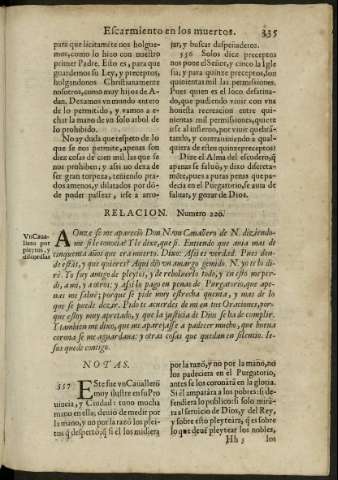 Escarmiento en los muertos. 335
para que licitamẽte nos holgue-
mos, como lo hizo con nuestro
primer Padre. Esto es, para que
guardemos su Ley, y preceptos,
holgandonos Christianamente
nosotros, como muy hijos de A-
dan. Dexamos vn mundo entero
de lo permitido, y vamos a e-
char la mano de vn solo arbol de
lo prohibido.
No ay duda que respeto de lo
que se nos permite, apenas son
diez cosas de cien mil las que se
nos prohiben, y assi no dexa de
ser gran torpeza, teniendo pra-
dos amenos, y dilatados por dó-
de poder passear, irse a arro-
jar, y buscar despeñaderos.
356 Solos diez preceptos
nos pone el Señor, y cinco la Igle
sia; y para quinze preceptos, son
quinientas mil las permissiones.
Pues quien es el loco desatina-
do, que pudiendo viuir con vna
honesta recreacion entre qui-
nientas mil permissiones, quiere
irse al infierno, por viuir quebrá-
tando, y contrauiniendo a qual-
quiera de estos quinze preceptos?
Dize el Alma del escudero, q̃
apenas se saluò, y dizo discreta-
mẽte, pues a puras penas que pa-
decia en el Purgatorio, se auia de
saluar, y gozar de Dios.
RELACION. Numero 220.
Vn Caua-
llero por
pleytos, y
discordias
A Onze se me apareciò Don N. vn Cauallero de N. diziendo-
me si le conocia? Y le dixe, que si. Entiendo que auia mas de
cinquenta años que era muerto. Dixo: Assi es verdad. Pues don-
de estás, y que quieres? Aqui estò vn amargo gemido. N. yo te lo di-
rè. Yo fuy amigo de pleytos, y de reboluerlo todo, y en esto me per-
di, a mi, y a otros; y assi lo pago en penas de Purgatorio, que ape-
nas me saluè; porque se pide muy estrecha quenta, y mas de lo
que se puede dezir. Pido te acuerdes de mi en tus Oraciones, por-
que estoy muy apretado, y que la justicia de Dios se ha de cumplir.
Y tambien me dixo, que me aparejasse a padecer mucho, que buena
corona se me aguardaua: y otras cosas que quedan en silencio. Ie-
sus quede contigo.
NOTAS.
357 ESte fue vn Cauallero
muy ilustre en su Pro
uincia, y Ciudad: tuuo mocha
mano en ella; deuiò de medir por
la mano, y no por la razò los pley-
tos q̃ despertó, q̃ si el los midiera
por la razó, y no por la mano, no
los padeciera en el Purgatorio,
antes se los coronárá en la gloria.
Si el amparàra a los pobres: si de-
fendiera lo publico: si solo mirà-
ra al seruicio de Dios, y del Rey,
y sobre esto pleyteàra, q̃ es sobre
lo que deuẽ pleytear los nobles,
Hh 3 los